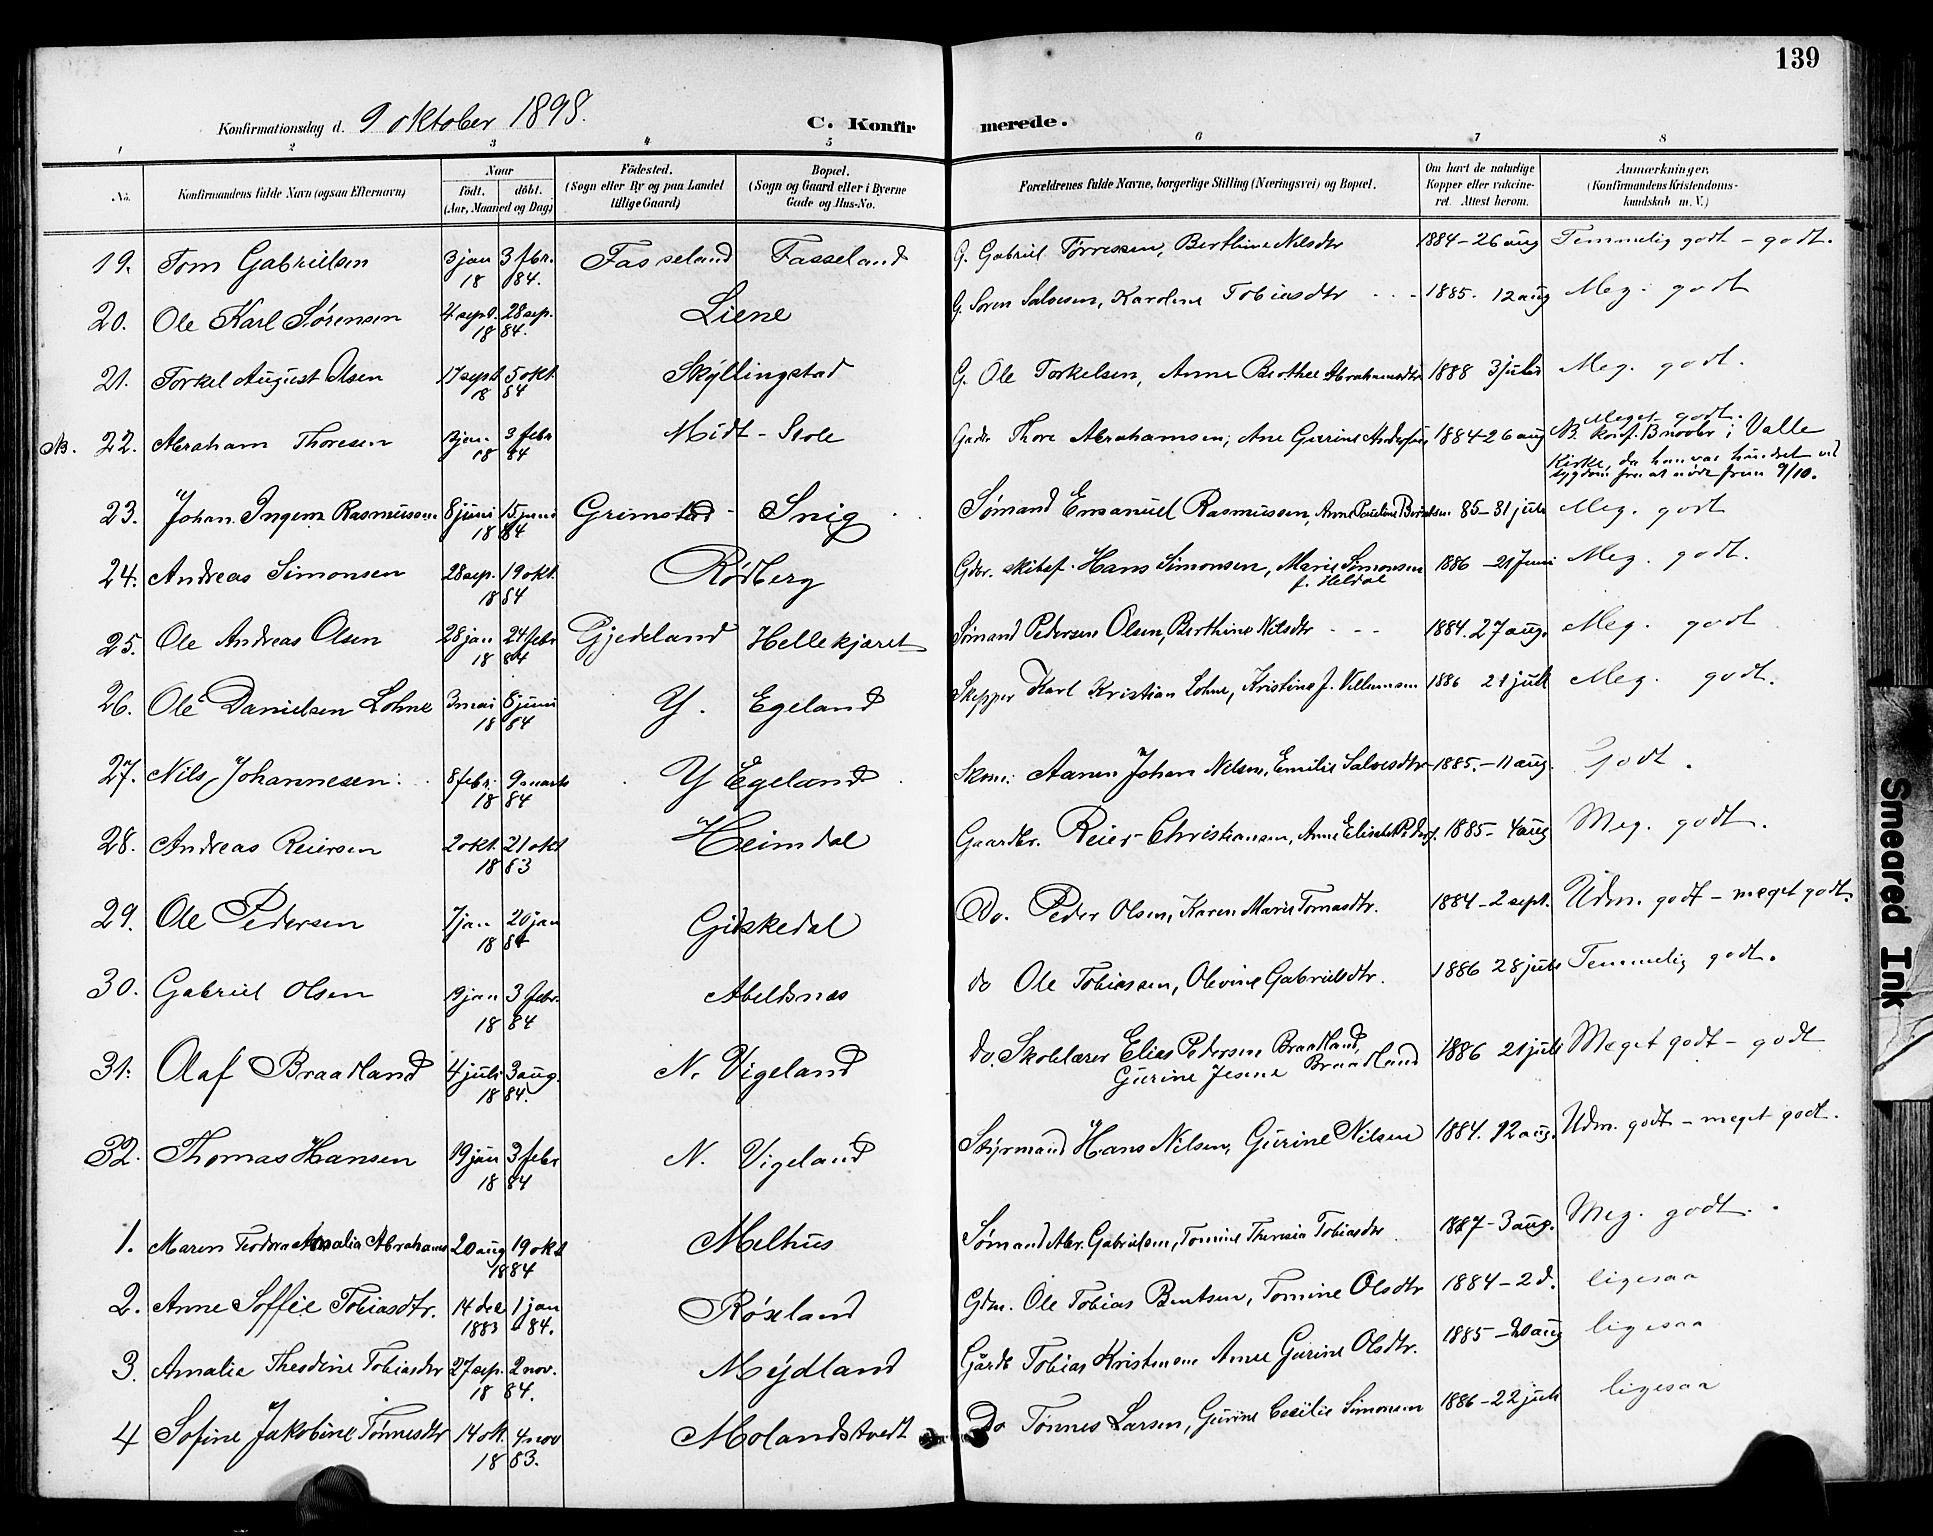 139
Konfirmationsdag d. 9 oktober 1898.
C. Konfirmerede.
1 2 3 4 5 6 7 8
No.
Konfirmandens fulde Navn (ogsaa Efternavn)
Naar
födt. döbt.
(Aar, Maaned og Dag)
Födested.
(Sogn eller By og paa Landet
tillige Gaard)
Bopæl.
(Sogn og Gaard eller i Byerne
Gade og Hus-No.
Forældrenes fulde Navne, borgerlige Stilling (Næringsvei) og Bopæl.
Om havt de naturlige
Kopper eller vakcine-
ret. Attest herom.
Anmærkninger,
(Konfirmandens Kristendoms-
kundskab m. V.)
19. Tom Gabrielsen 3 jan 3 febr. Fasseland Fasseland G. Gabriel Tørressen, Berthine Nilsdtr 1884-26 aug Temmelig godt - godt.
18 84.
20. Ole Karl Sørensen 4 sept. 28 sep. Liene G. Soren Salvesen, Karoline Tobiasdtr 1885. 12 aug Meg. godt
18 84.
21. Torkel August Olsen 17 sept 5 okt. Skyllingstad G. Ole Torkelsen, Anne Berthee Abrahamsdtr 1888 3 juli Meg. godt.
18 84
NB. 22. Abraham Thoresen jan. 3 febr Midt-Skole Gadr Thore Abrahamsen, Ane Gurine Andersdtr 1884-26 aug Meget godt.
18 84
NB. Konf. i Valle
Kirke, da han var hindret ved
sygdom fra at møde frem 9/10.
23. Johan Ingem Rasmussen 8 juni 15 juni Grimstad - Snig Sømand Emanuel Rasmussen, Anne Pauline 85-31 juli Meg. godt
18 84
24. Andreas Simonsen 28 sep. 19 okt. Rødberg Gdbr. skibsf. Hans Simonsen, Marie Simonsen 1886 - 21 Juni Meg. godt.
18 84 f. Heldal
25. Ole Andreas Olsen 28 jan 24 febr Gjedeland Hellekjæret Sømand Pedersen Olsen, Berthine Nilsdtr 1884. 27 aug. Meg. godt
18 84
26. Ole Danielsen Lohne 3 mai 8 juni Y. Egeland Skepper Karl Kristian Lohne, Kristine f. Villumsen 1886 21 juli Meg. godt.
18 84
27. Nils Johannesen 8 febr. 9 marts Y Egeland Skom. Aanen Johan Nilsen, Emilie Salvesdtr 1885.-11 aug. Godt.
18 84
28. Andreas Reiersen 2 okt. 21 okt Heimdal Gaardbr. Reier Christiansen, Anne Elisabet Pedersd. 1885-4 aug Meg. godt.
18 83
29. Ole Pedersen 7 jan 20 jan Gidskedal Do. Peder Olsen, Karen Marie Tomasdtr. 1884-2 sept. Udm. godt - meget godt.
18 84
30. Gabriel Olsen 19 jan 3 febr. Abelsnes do Ole Tobiassen, Olevine Gabrielsdtr. 1886 28 juli Temmelig godt.
18 84
31. Olaf Braadland 4 juli 3 aug. N. Vigeland do. Skolelærer Elias Pedersen Braadland, 1886 21 juli Meget godt - godt
18 84. Gurine Jesine Braadland
32. Thomas Hansen 19 jan 3 febr N. Vigeland Styrmand Hans Nilsen, Gurine Nilsen 1884. 12 aug. Udm. godt - meget godt.
18 84
1. Maren Teodora Amalia Abrahams 20 aug 19 okt Melhus Sømand Abr. Gabrielsen, Tomine Theresia Tobiasdtr 1887-3 aug. Meg. godt.
1884
2. Anne Soffie Tobiasdtr. 14 dec 1 jan Røxland Gdm. Ole Tobias Bentsen, Tomine Olsdtr 1884-2 d. ligesaa
1883 84.
3. Amalie Thesdine Tobiasdtr 27 sep. 2 nov. Mydland Gårdb Tobias Kristensen Anne Gurine Olsdtr. 1885-20 aug ligesaa
18 84.
4 Sofine Jakobine Tønnesdtr 14 okt. 4 nov Molandstvedt Do Tønnes Larsen, Gurine Cecilie Simonsen 1886-22 juli ligesaa
18 83.
Smeared Ink